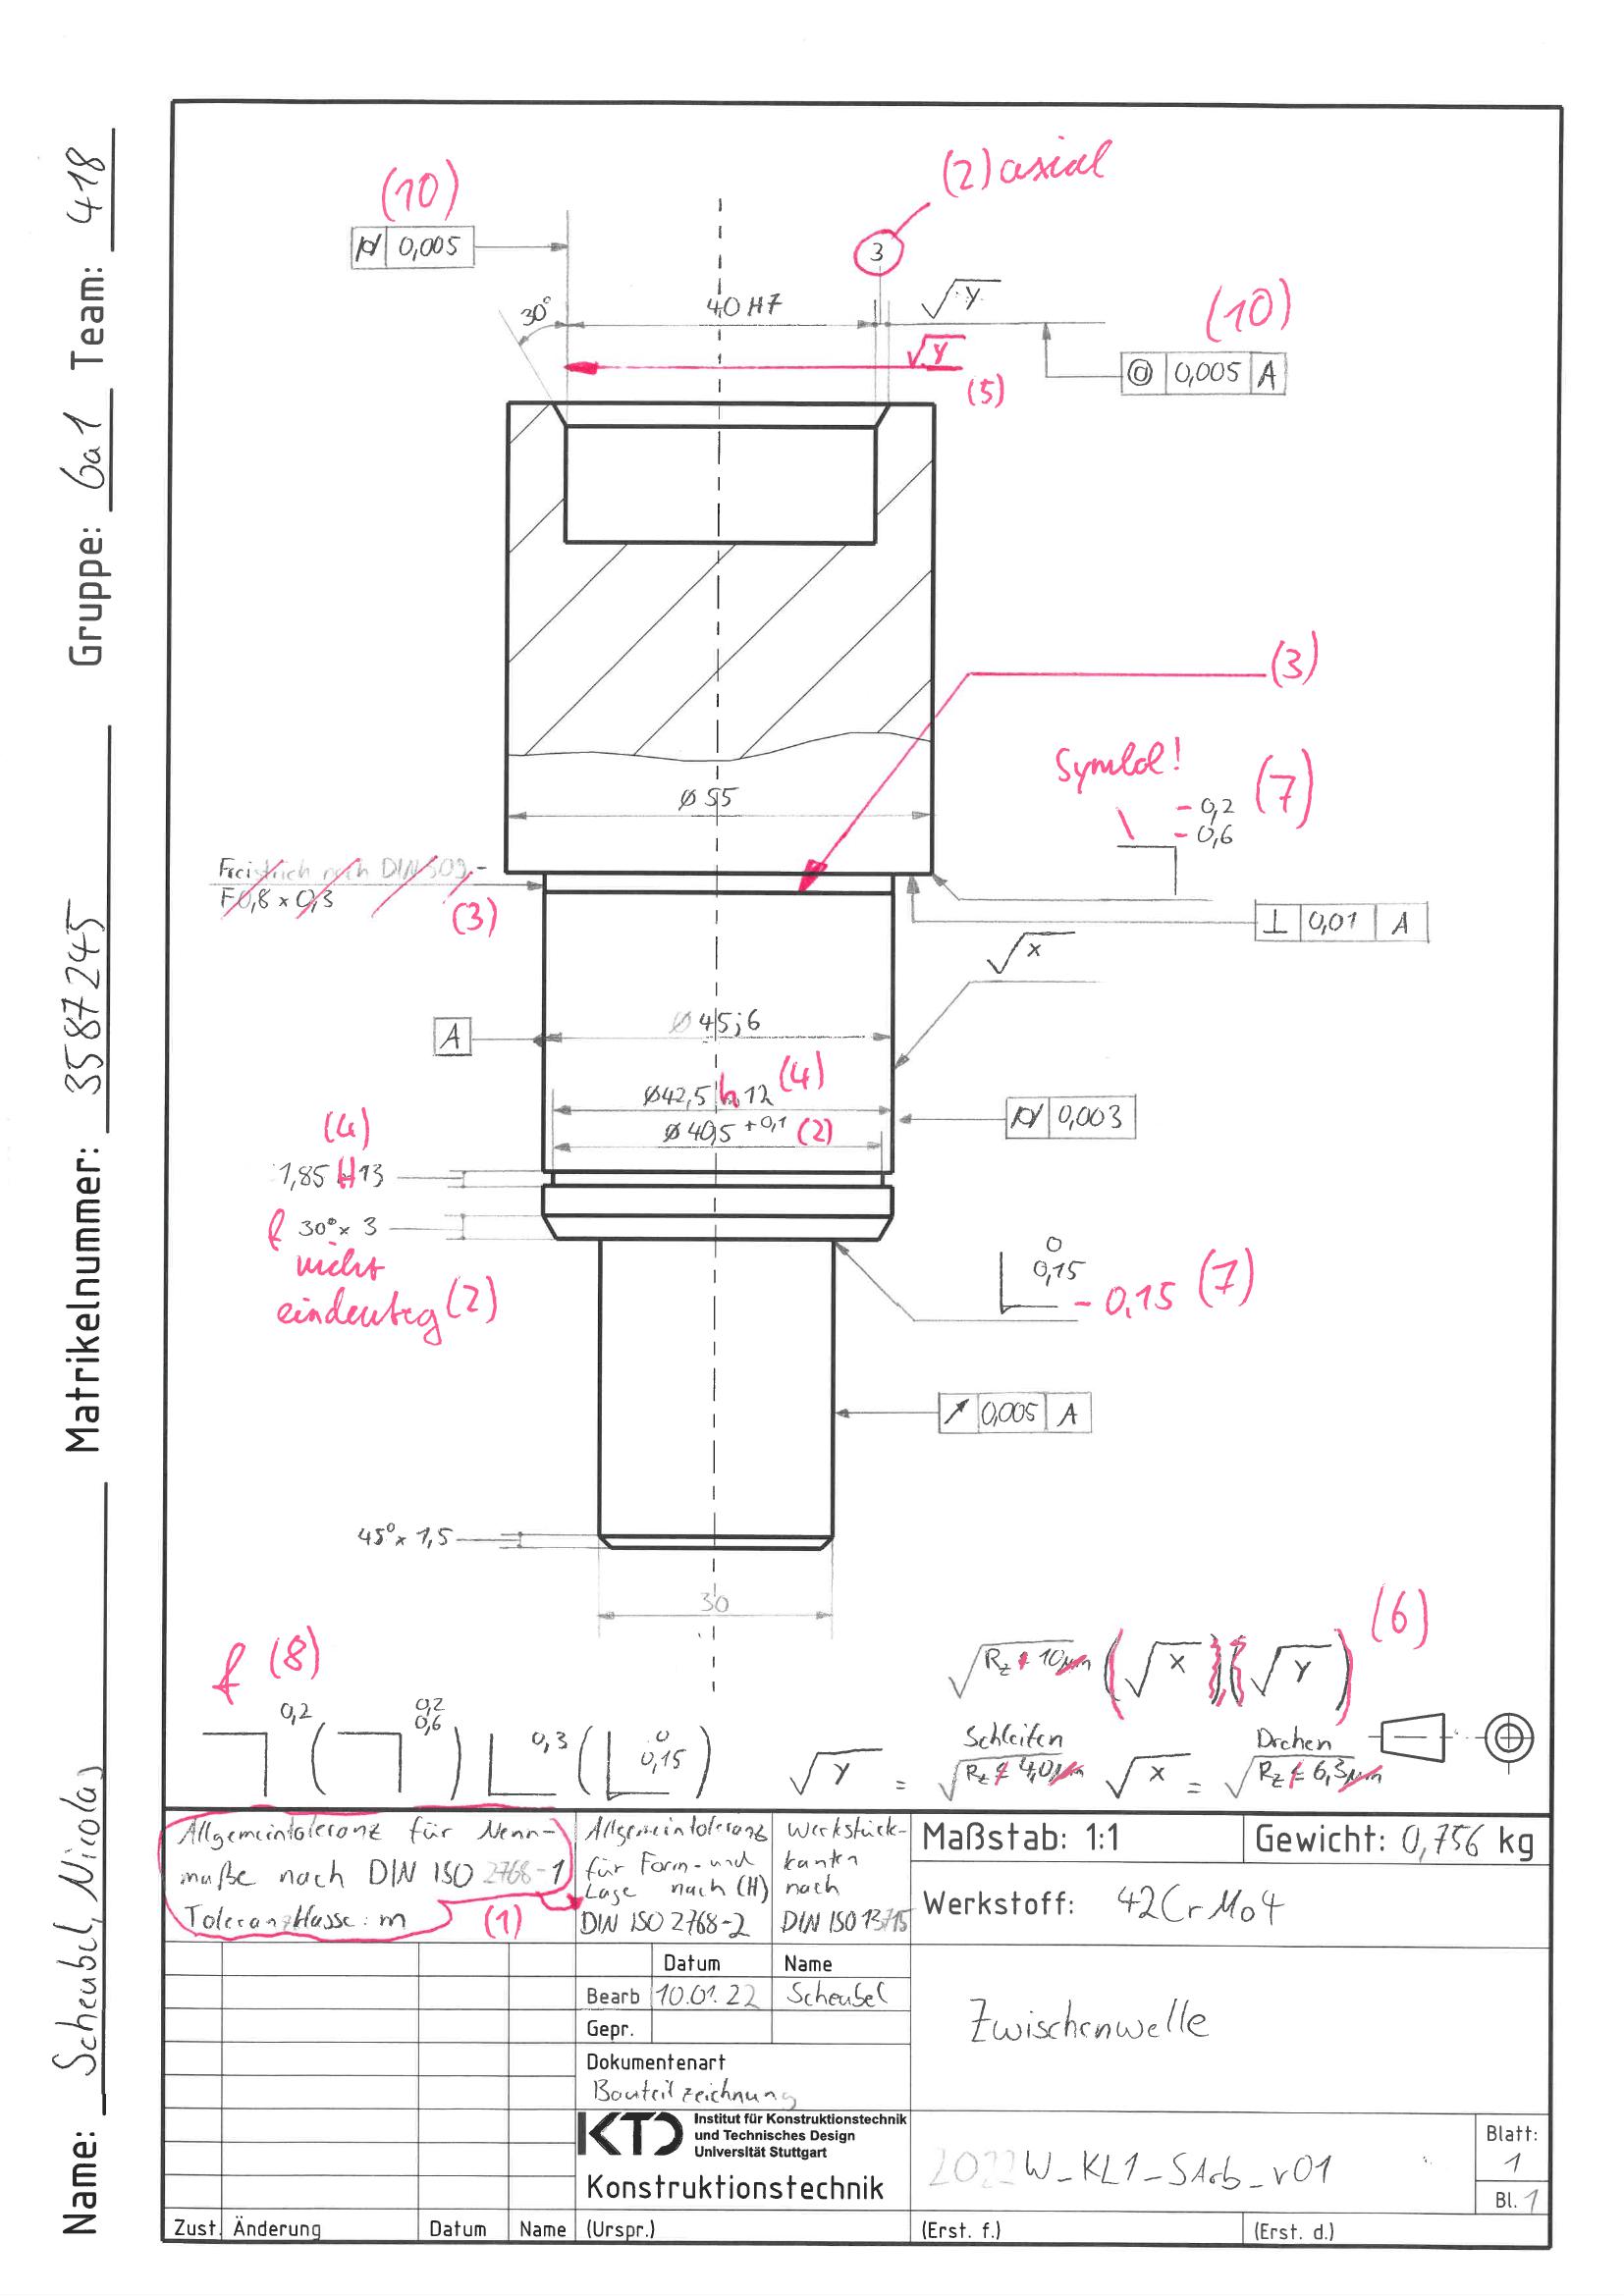 Name: Scheubel, Nicolas Matrikelnummer: 3587245 Gruppe: 6a1 Team: 418
(2) axial
(10)
0,005
3
30°
40 H7
√Y
(10)
0,005 A
√Y
(5)
(3)
Symbol!
(7)
- 0,2
- 0,6
Ø 55
Freistich nach DIN 509-
F0,8 x 0,3
(3)
⊥ 0,01 A
√x
A
Ø 45j6
Ø42,5 h12 (4)
Ø 40,5 +0,1 (2)
0,003
(4)
1,85 H13
f 30° x 3
nicht
eindeutig (2)
0
0,15
- 0,15 (7)
0,005 A
45° x 1,5
30
(6)
f (8)
√Rz 10µm (√x)(√Y)
0,2 (0,2 0,6) 0,3 (0 0,15)
Schleifen
Drehen
√Y = √Rz ≤ 4,0µm √x = √Rz ≤ 6,3µm
Allgemeintoleranz für Nenn-
maße nach DIN ISO 2768-1
Toleranzklasse: m
(1)
Allgemeintoleranz
für Form- und
Lage nach (H)
DIN ISO 2768-2
Werkstück-
kanten
nach
DIN ISO 13715
Maßstab: 1:1
Gewicht: 0,756 kg
Werkstoff: 42CrMo4
Datum Name
Bearb 10.01.22 Scheubel
Gepr.
Dokumentenart
Bauteilzeichnung
Zwischenwelle
KTD Institut für Konstruktionstechnik
und Technisches Design
Universität Stuttgart
Konstruktionstechnik
2022W_KL1_SArb_v01
Blatt:
1
Bl. 1
Zust. Änderung Datum Name (Urspr.) (Erst. f.) (Erst. d.)